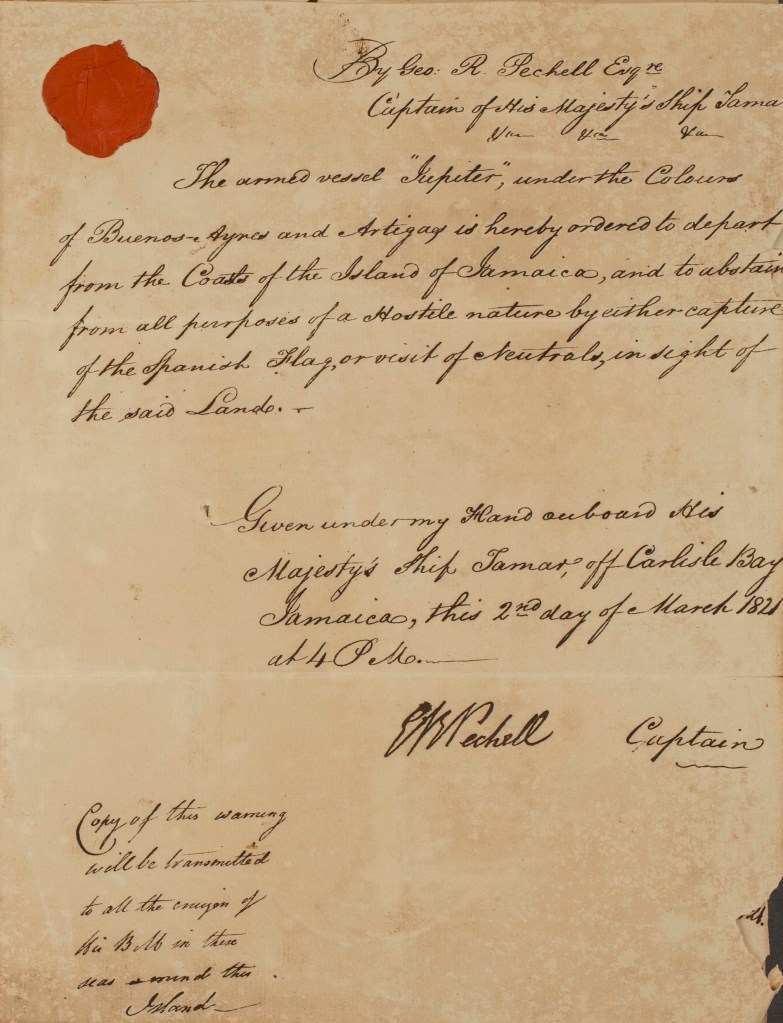 By Geo: R. Pechell Esqre
Captain of His Majesty's Ship Tama
&c &c &c
The armed vessel "Jupiter", under the Colours
of Buenos-Ayres and Artigas is hereby ordered to depart
from the Coasts of the Island of Jamaica, and to abstain
from all purposes of a Hostile nature by either capture
of the Spanish Flag, or visit of Neutrals, in sight of
the said Land.
Given under my Hand onboard His
Majesty's Ship Tamar, off Carlisle Bay
Jamaica, this 2nd day of March 1821
at 4 P M.
GRPechell Captain
Copy of this warning
will be transmitted
to all the cruizers of
His B M in these
seas round this
Island